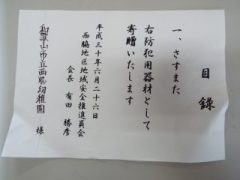 目録
一、さすまた
右防犯用器材として
寄贈いたします
平成三十年六月二十六日
西脇地区地域安全推進員会
会長 有田 勝彦
和歌山市立西脇幼稚園 様